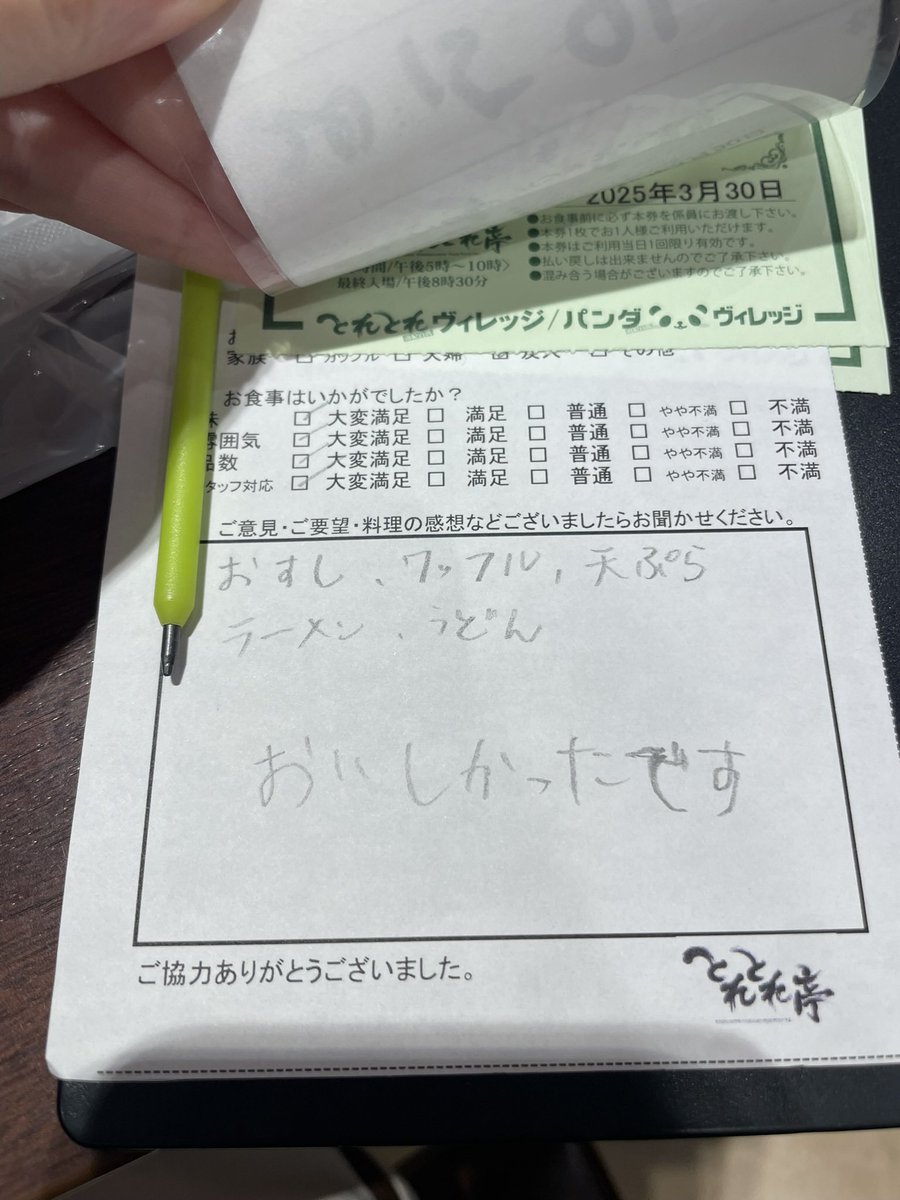 2025年3月30日
●お食事前に必ず本券を係員にお渡し下さい。
●本券1枚でお1人様ご利用いただけます。
●本券はご利用当日1回限り有効です。
●払い戻しは出来ませんのでご了承下さい。
●混み合う場合がございますのでご了承下さい。
時間/午後5時〜10時〉
最終入場/午後8時30分
とれとれヴィレッジ/パンダヴィレッジ
家族 □ カップル □ 夫婦 友人 □ その他
お食事はいかがでしたか?
味 ☑ 大変満足 □ 満足 □ 普通 □ やや不満 □ 不満
雰囲気 ☑ 大変満足 □ 満足 □ 普通 □ やや不満 □ 不満
品数 ☑ 大変満足 □ 満足 □ 普通 □ やや不満 □ 不満
タッフ対応 ☑ 大変満足 □ 満足 □ 普通 □ やや不満 □ 不満
ご意見・ご要望・料理の感想などございましたらお聞かせください。
おすし、ワッフル、天ぷら
ラーメン、うどん
おいしかったです
ご協力ありがとうございました。
とれとれ亭